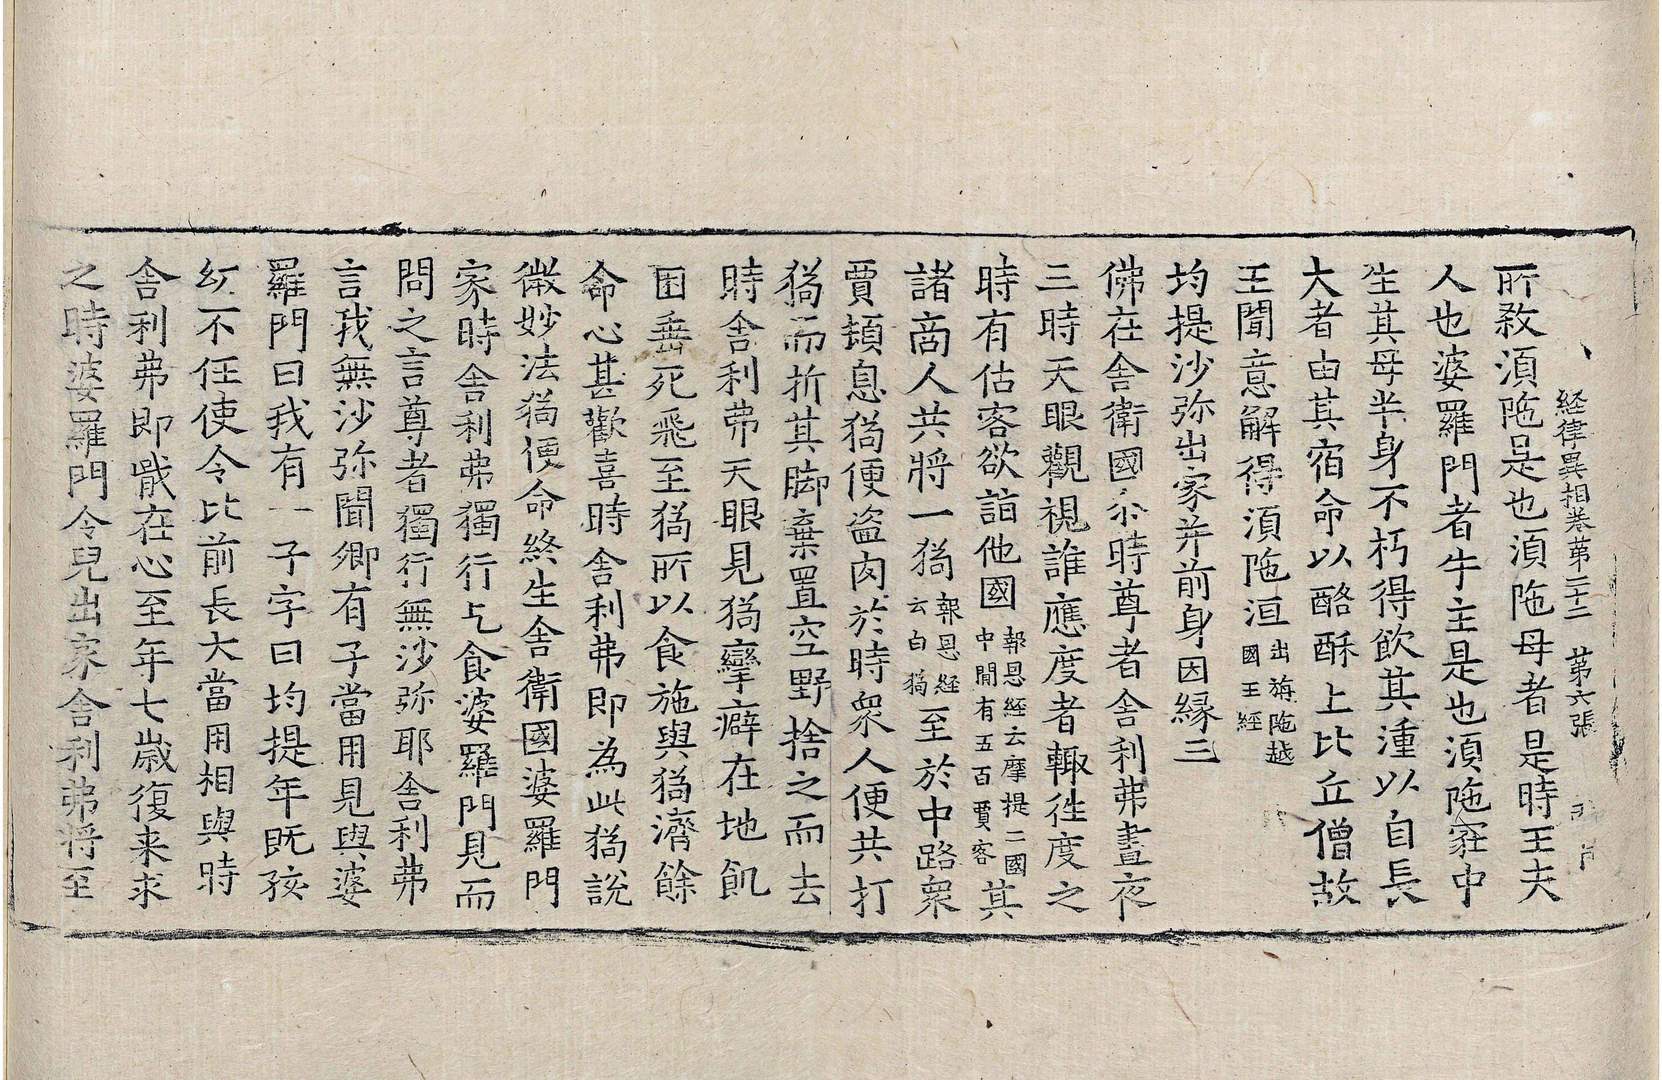 経律異相卷第二十二 第六張
所敎湏陁是也湏陁母者是時王夫
人也婆羅門者牛主是也湏陁冢中
生其母半身不朽得飮其湩以自長
大者由其宿命以酪酥上比丘僧故
王聞意解得湏陁洹出旃陁越國王經
均提沙弥出家并前身因縁三
佛在舎衛國尒時尊者舎利弗晝夜
三時天眼觀視誰應度者輙徃度之
時有估客欲詣他國報恩經云摩提二國中閒有五百賈客其
諸商人共將一猗報恩経云白猗至於中路衆
賈頓息猗便盜肉於時衆人便共打
猗而折其脚棄置空野捨之而去
時舎利弗天眼見猗攣癖在地飢
困垂死飛至猗所以食施與猗濟餘
命心甚歡喜時舎利弗即為此猗說
微妙法猗便命終生舎衛國婆羅門
家時舎利弗獨行乞食婆羅門見而
問之言尊者獨行無沙弥耶舎利弗
言我無沙弥聞卿有子當用見與婆
羅門曰我有一子字曰均提年既孩
幼不任使令比前長大當用相與時
舎利弗即戢在心至年七歲復来求
之時婆羅門令兒出家舎利弗将至